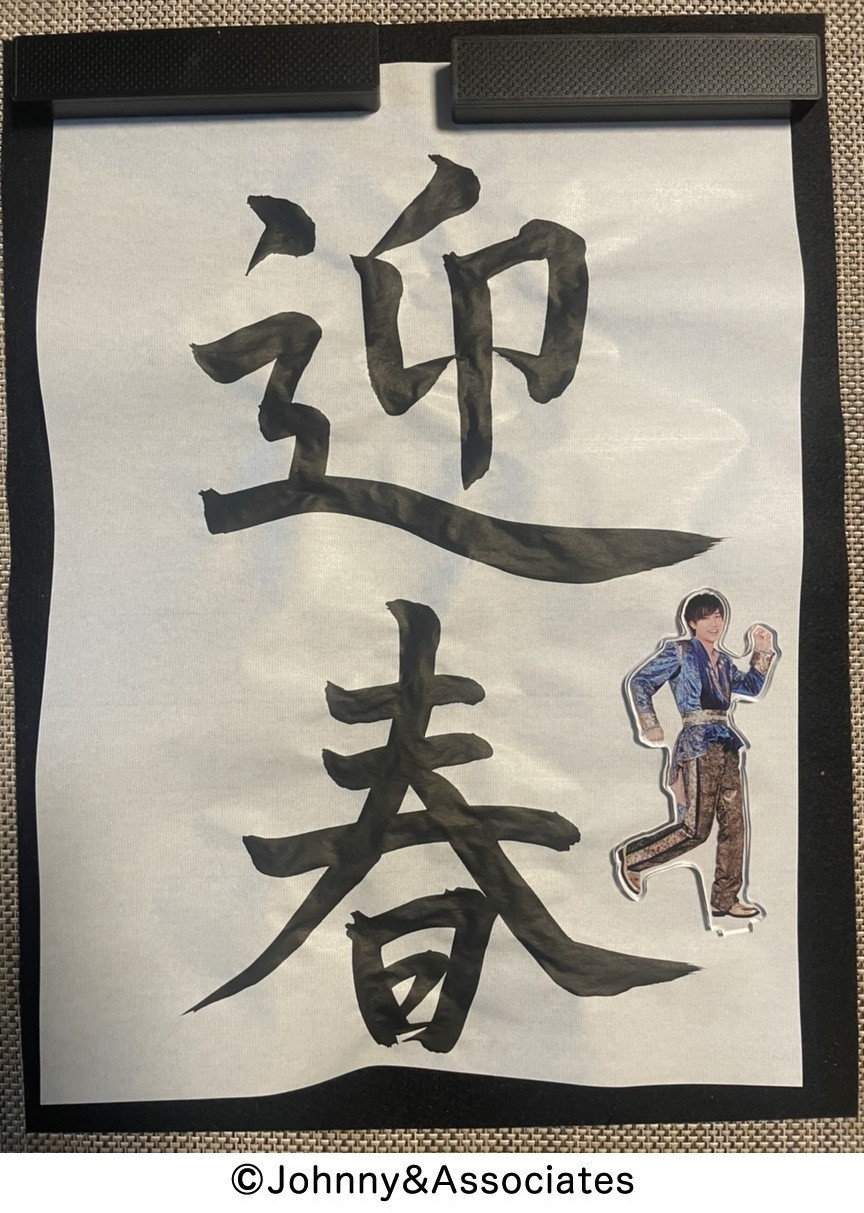 迎春
©Johnny&Associates